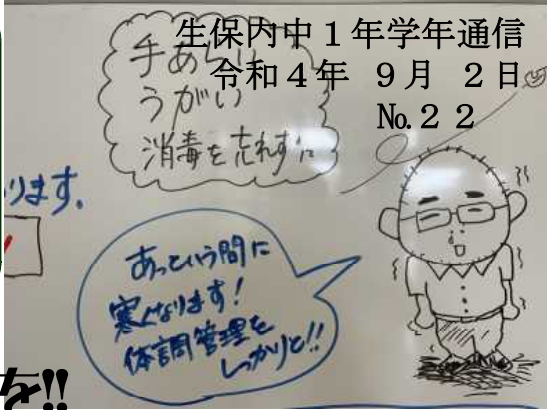 生保内中１年学年通信
令和４年 ９月 ２日
№２２
手あらい
うがい
消毒を忘れずに
ります。
あっという間に
寒くなります！
体調管理を
しっかりと!!
を!!